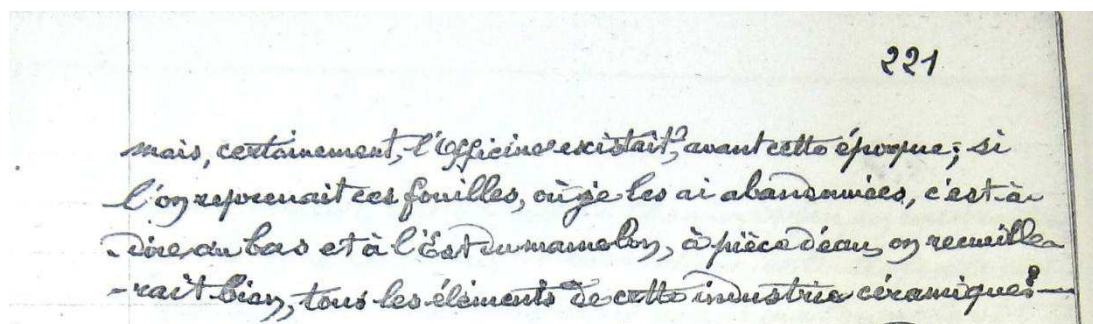 221
mais, certainement, l'Officine existait, avant cette époque; si
l'on reprenait ces fouilles, où je les ai abandonnées, c'est-à-
dire au bas et à l'Est du mamelon, à pièce d'eau, on recueille
-rait bien, tous les éléments de cette industrie céramique. —